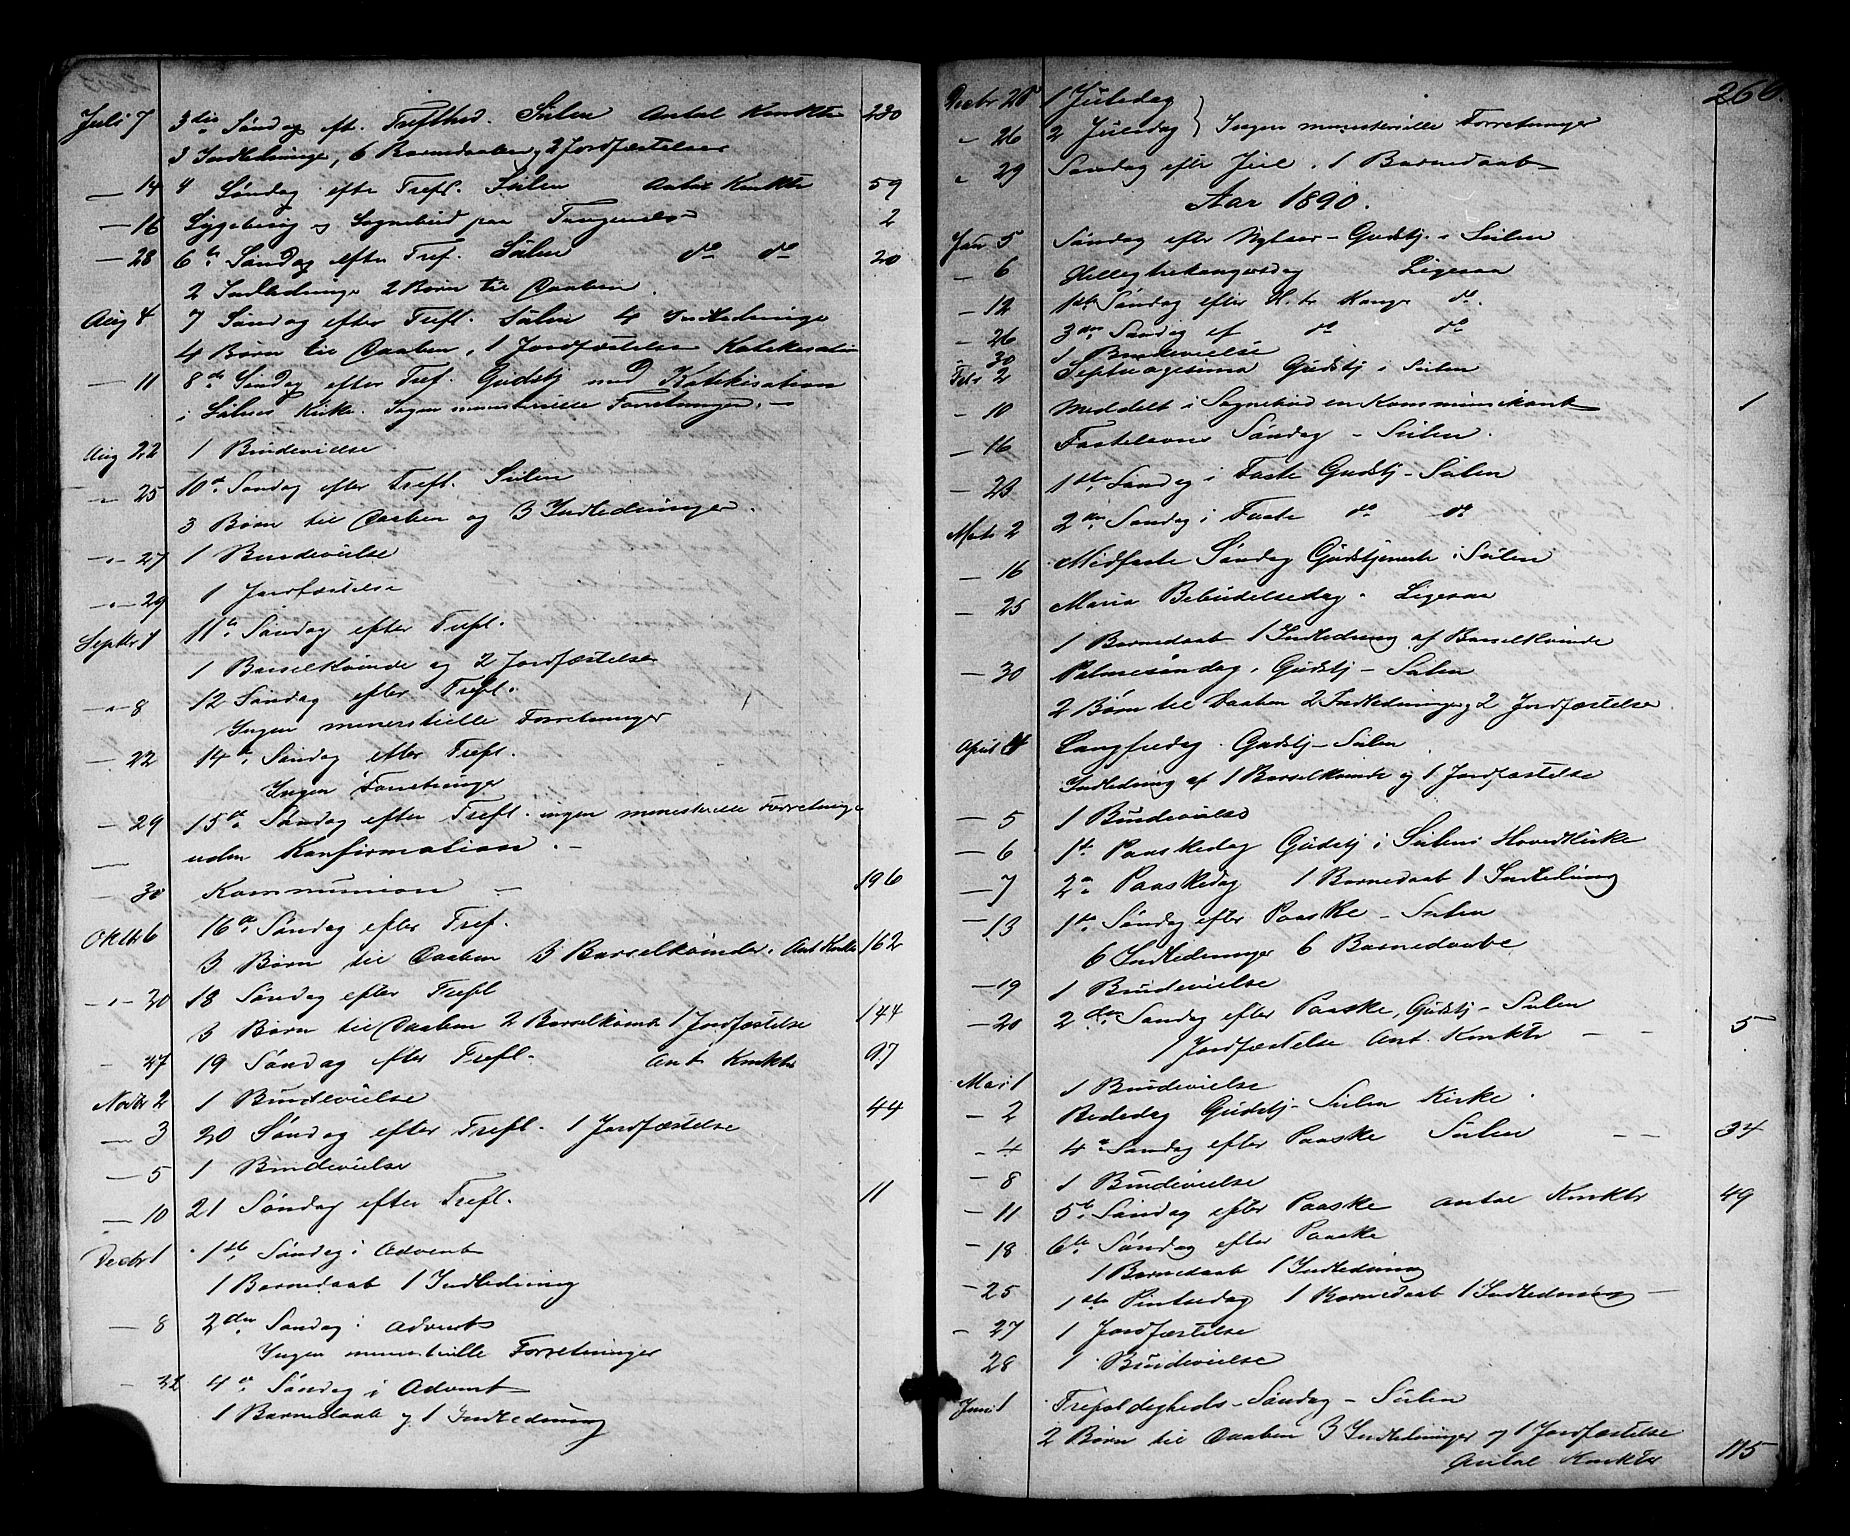 Juli 7 3die Søndag eft. Trefthed. Sulen Antal Kmkte 230
3 Indledninge, 6 Barnedaaben, 2 Jordfæstelser
— 14 4 Søndag efte Trefl. Sulen Antal Kmkte 59
— 16 og Sognebud paa 2
— 28 6te Søndag efter Tref. Sulen do do 20
2 Indledninge 2 Børn til Daaben.
Aug 4 7 Søndag efter Trefl. Sulen 4 Indledninge
4 Børn til Daaben, 1 Jordfæstelse Katekisation
— 11 8de Søndag efter Tref. Gudstj med Katekisation
i Sulens Kirke. Ingen ministerielle Forretninger. —
Aug 22 1 Brudevielse
— " 25 10de Søndag efter Trefl. Sulen
3 Børn til Daaben og 3 Indledninger.
— " — 27 1 Brudevielse
— " — 29 1 Jordfæstelse
Septbr 1 11te Søndag efter Trefl.
1 Barselkvinde og 2 Jordfæstelse
— " — 8 12 Søndag efter Trefl.
Ingen minerstielle Forretninger
— 22 14de Søndag efter Trefl.
Ingen Forretninger
— 29 15de Søndag efter Trefl. ingen ministerielle Forretninge
— uden Konfirmation. —
— 30 Kommunion — 196
Oktbr 6 16de Søndag efter Tref.
3 Børn til Daaben 3 Barselkvinder. Ant Kmkte 162
— " — 20 18 Søndag efter Trefl
3 Børn til Daaben 2 Barselkvinde 1 Jordfæstelse 144
— 27 19 Søndag efter Trefl. Ant Kmktr 97
Novbr 2 1 Brudevielse
— 3 20 Søndag efter Trefl. 1 Jordfæstelse 44
— 5 1 Brudevielse
— 10 21 Søndag efter Trefl. 11
Decbr 1 1ste Søndag i Advent
1 Barnedaab 1 Indledning
— 8 2den Søndag i Advent
Ingen ministerielle Forretninger
— 22 4de Søndag i Advent
1 Barnedaab og 1 Indledning
260.
Decbr 25 1 Juledag
— 26 2 Juledag } Ingen ministerielle Forretninger
" 29 Søndag efter Jul. 1 Barnedaab
Aar 1890.
Jan 5 Søndag efter Nytaar — Gudstj. i Sulen
— 6 Helligtrekongersdag Ligesaa
— 12 1ste Søndag efter H. tr Konge do.
— 26 3die Søndag ef do do
30 1 Brudevielse
Febr 2 Septuagesima Gudstj i Sulen
— 10 Meddelt i Sognebud en Kommunikant 1
— 16 Fastelavns Søndag — Sulen.
— 23 1ste Søndag i Faste Gudstj — Sulen
Marts 2 2den Søndag i Faste do do
— 16 Midfaste Søndag Gudstjeneste i Sulen
— 25 Maria Bebudelsedag. Ligesaa
1 Barnedaab 1 Indledning af Barselkvinde
— 30 Palmesøndag. Gudstj — Sulen
2 Børn til Daaben 2 Indledninge og 2 Jordfæstelse
April 4 Langfredag. Gudstj — Sulen.
Indledning af 1 Barselkvinde og 1 Jordfæstelse
— 5 1 Brudevielse
— 6 1ste Paaskedag Gudstj i Sulens Hovedkirke
— 7 2den Paaskedag 1 Barnedaab 1 Indledning
— 13 1ste Søndag efter Paaske — Sulen
6 Indledninger 6 Barnedaabe
— 19 1 Brudevielse
— 20 2den Søndag efter Paaske, Gudstj — Sulen
1 Jordfæstelse Ant. Kmktr — — 5
Mai 1 1 Brudevielse
— 2 Bededag Gudstj — Sulen Kirke.
— 4 4de Søndag efter Paaske Sulen — — 34
— 8 1 Brudevielse
— 11 5te Søndag efter Paaske Antal Kmktr 49
— 18 6te Søndag efter Paaske
1 Barnedaab 1 Indledning
— 25 1ste Pintsedag 1 Barnedaab 1 Indledning —
— 27 1 Jordfæstelse
28 1 Brudevielse
Juni 1 Trefoldigheds-Søndag — Sulen
2 Børn til Daaben 3 Indledninger og 1 Jordfæstelse
Antal Kmktr 115